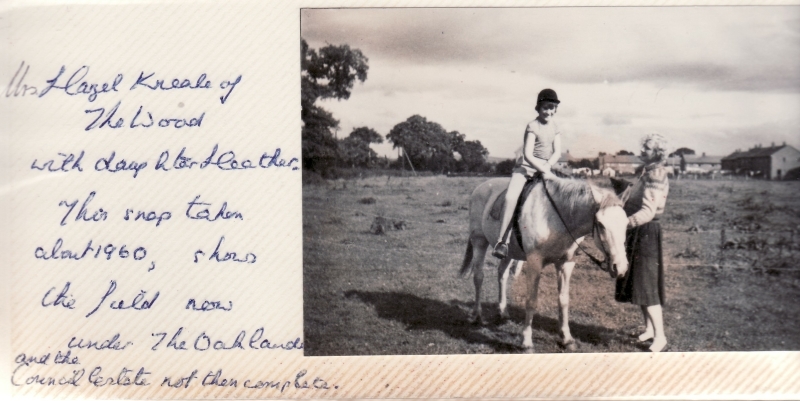 Mrs Hazel Kneale of
The Wood
with daughter Heather.
This snap taken
about 1960, shows
the field now
under The Oaklands
and the
Council Estate not then complete.